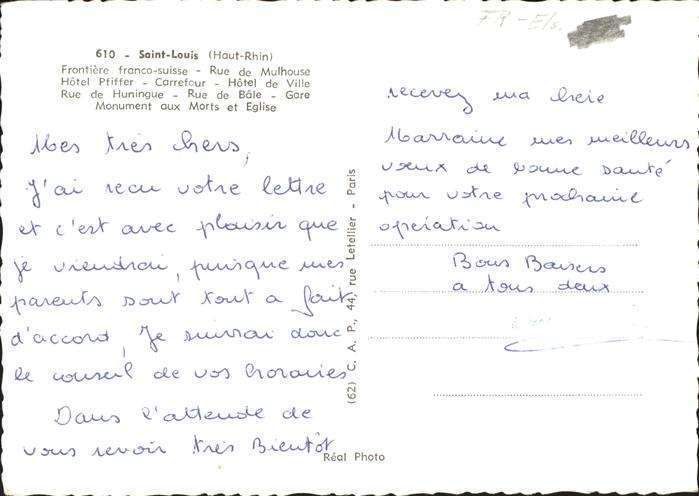 FR - Els.
610 - Saint-Louis (Haut-Rhin)
Frontière franco-suisse - Rue de Mulhouse
Hôtel Pfiffer - Carrefour - Hôtel de Ville
Rue de Huningue - Rue de Bâle - Gare
Monument aux Morts et Eglise
Mes très chers,
J'ai recu votre lettre
et c'est avec plaisir que
je viendrai, puisque mes
parents sont tout a fait
d'accord, Je suivrai donc
le conseil de vos horaires
Dans l'attende de
vous revoir très Bientôt
(62) C. A. P., 44, rue Letellier - Paris
Réal Photo
recevez ma
Marraine mes meilleurs
voeux de bonne santé
pour votre prochaine
opération
Bons Baisers
a tous deux